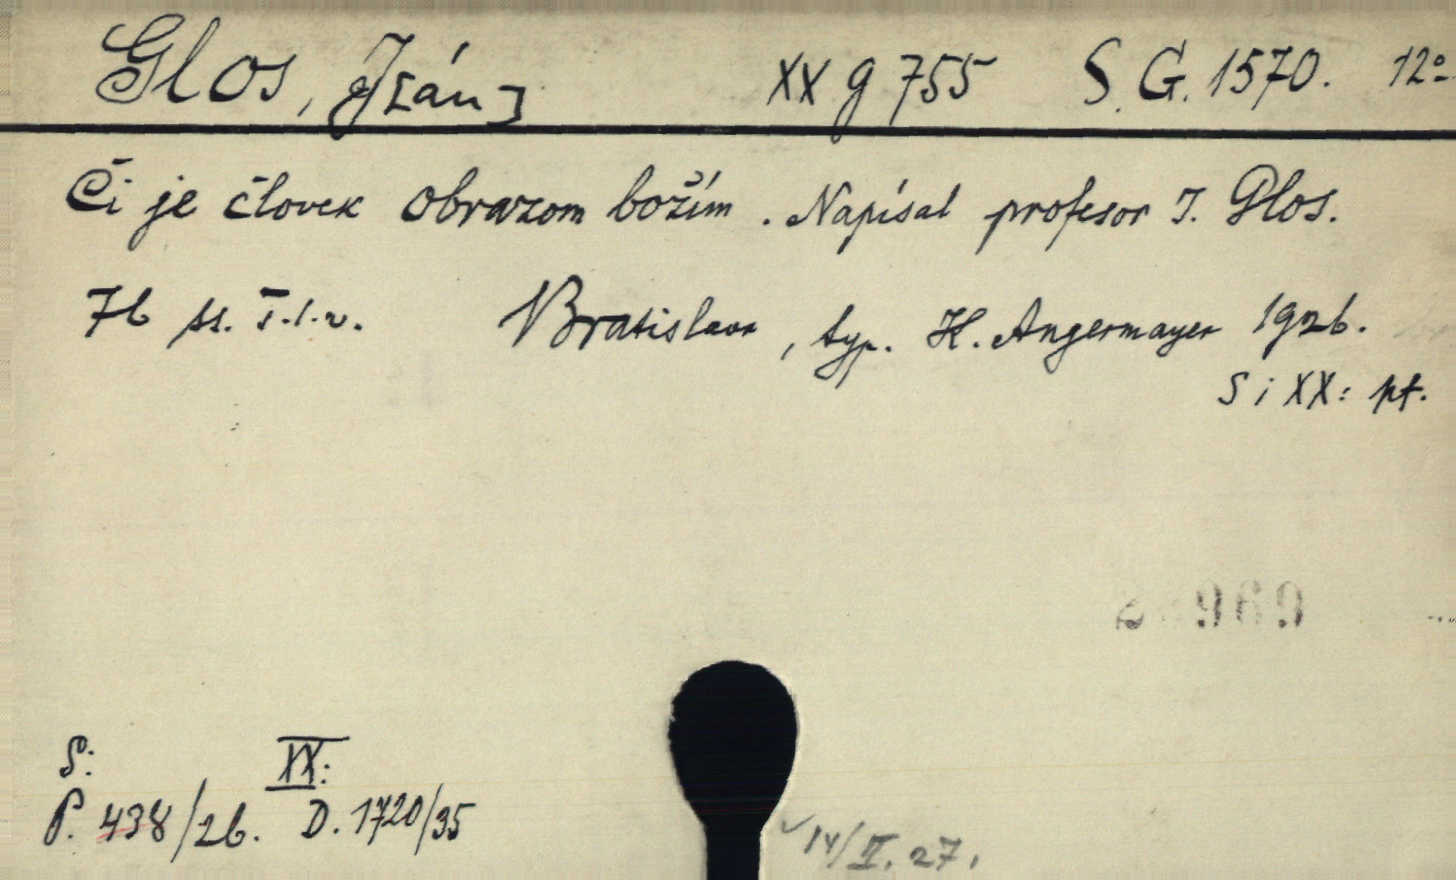 Glos, J[án] XX g 755 S. G. 1570. 12°
Či je človek obrazom božím. Napísal profesor J. Glos.
76 s. Bratislava, typ. K. Angermayer 1926.
S i XX: pt.
S: XX:
P. 438/26. D. 1720/35
14/II. 27.